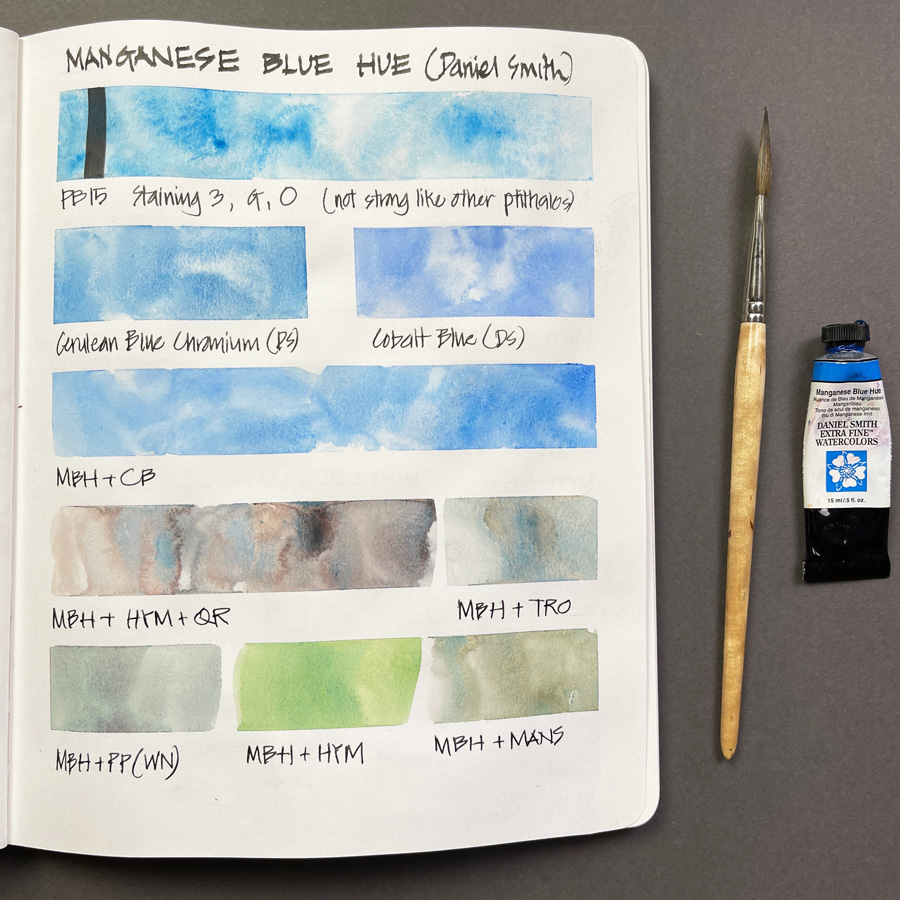 MANGANESE BLUE HUE (Daniel Smith)
PB15 Staining 3, G, O (not strong like other phthalos)
Cerulean Blue Chromium (DS)
Cobalt Blue (DS)
MBH + CB
MBH + HYM + QR
MBH + TRO
MBH + PP (WN)
MBH + HYM
MBH + MANS
Manganese Blue Hue
Nuance de Bleu de Manganèse
Manganblau
Tono de azul de manganeso
DANIEL SMITH
EXTRA FINE™
WATERCOLORS
15 ml/.5 fl. oz.